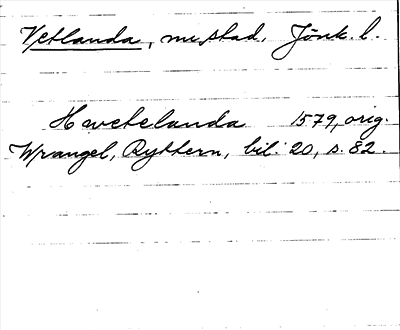 Vetlanda, nu stad. Jönk. l.
Hwetelanda 1579, orig.
Wrangel, Ryttern, bil. 20, s. 82.